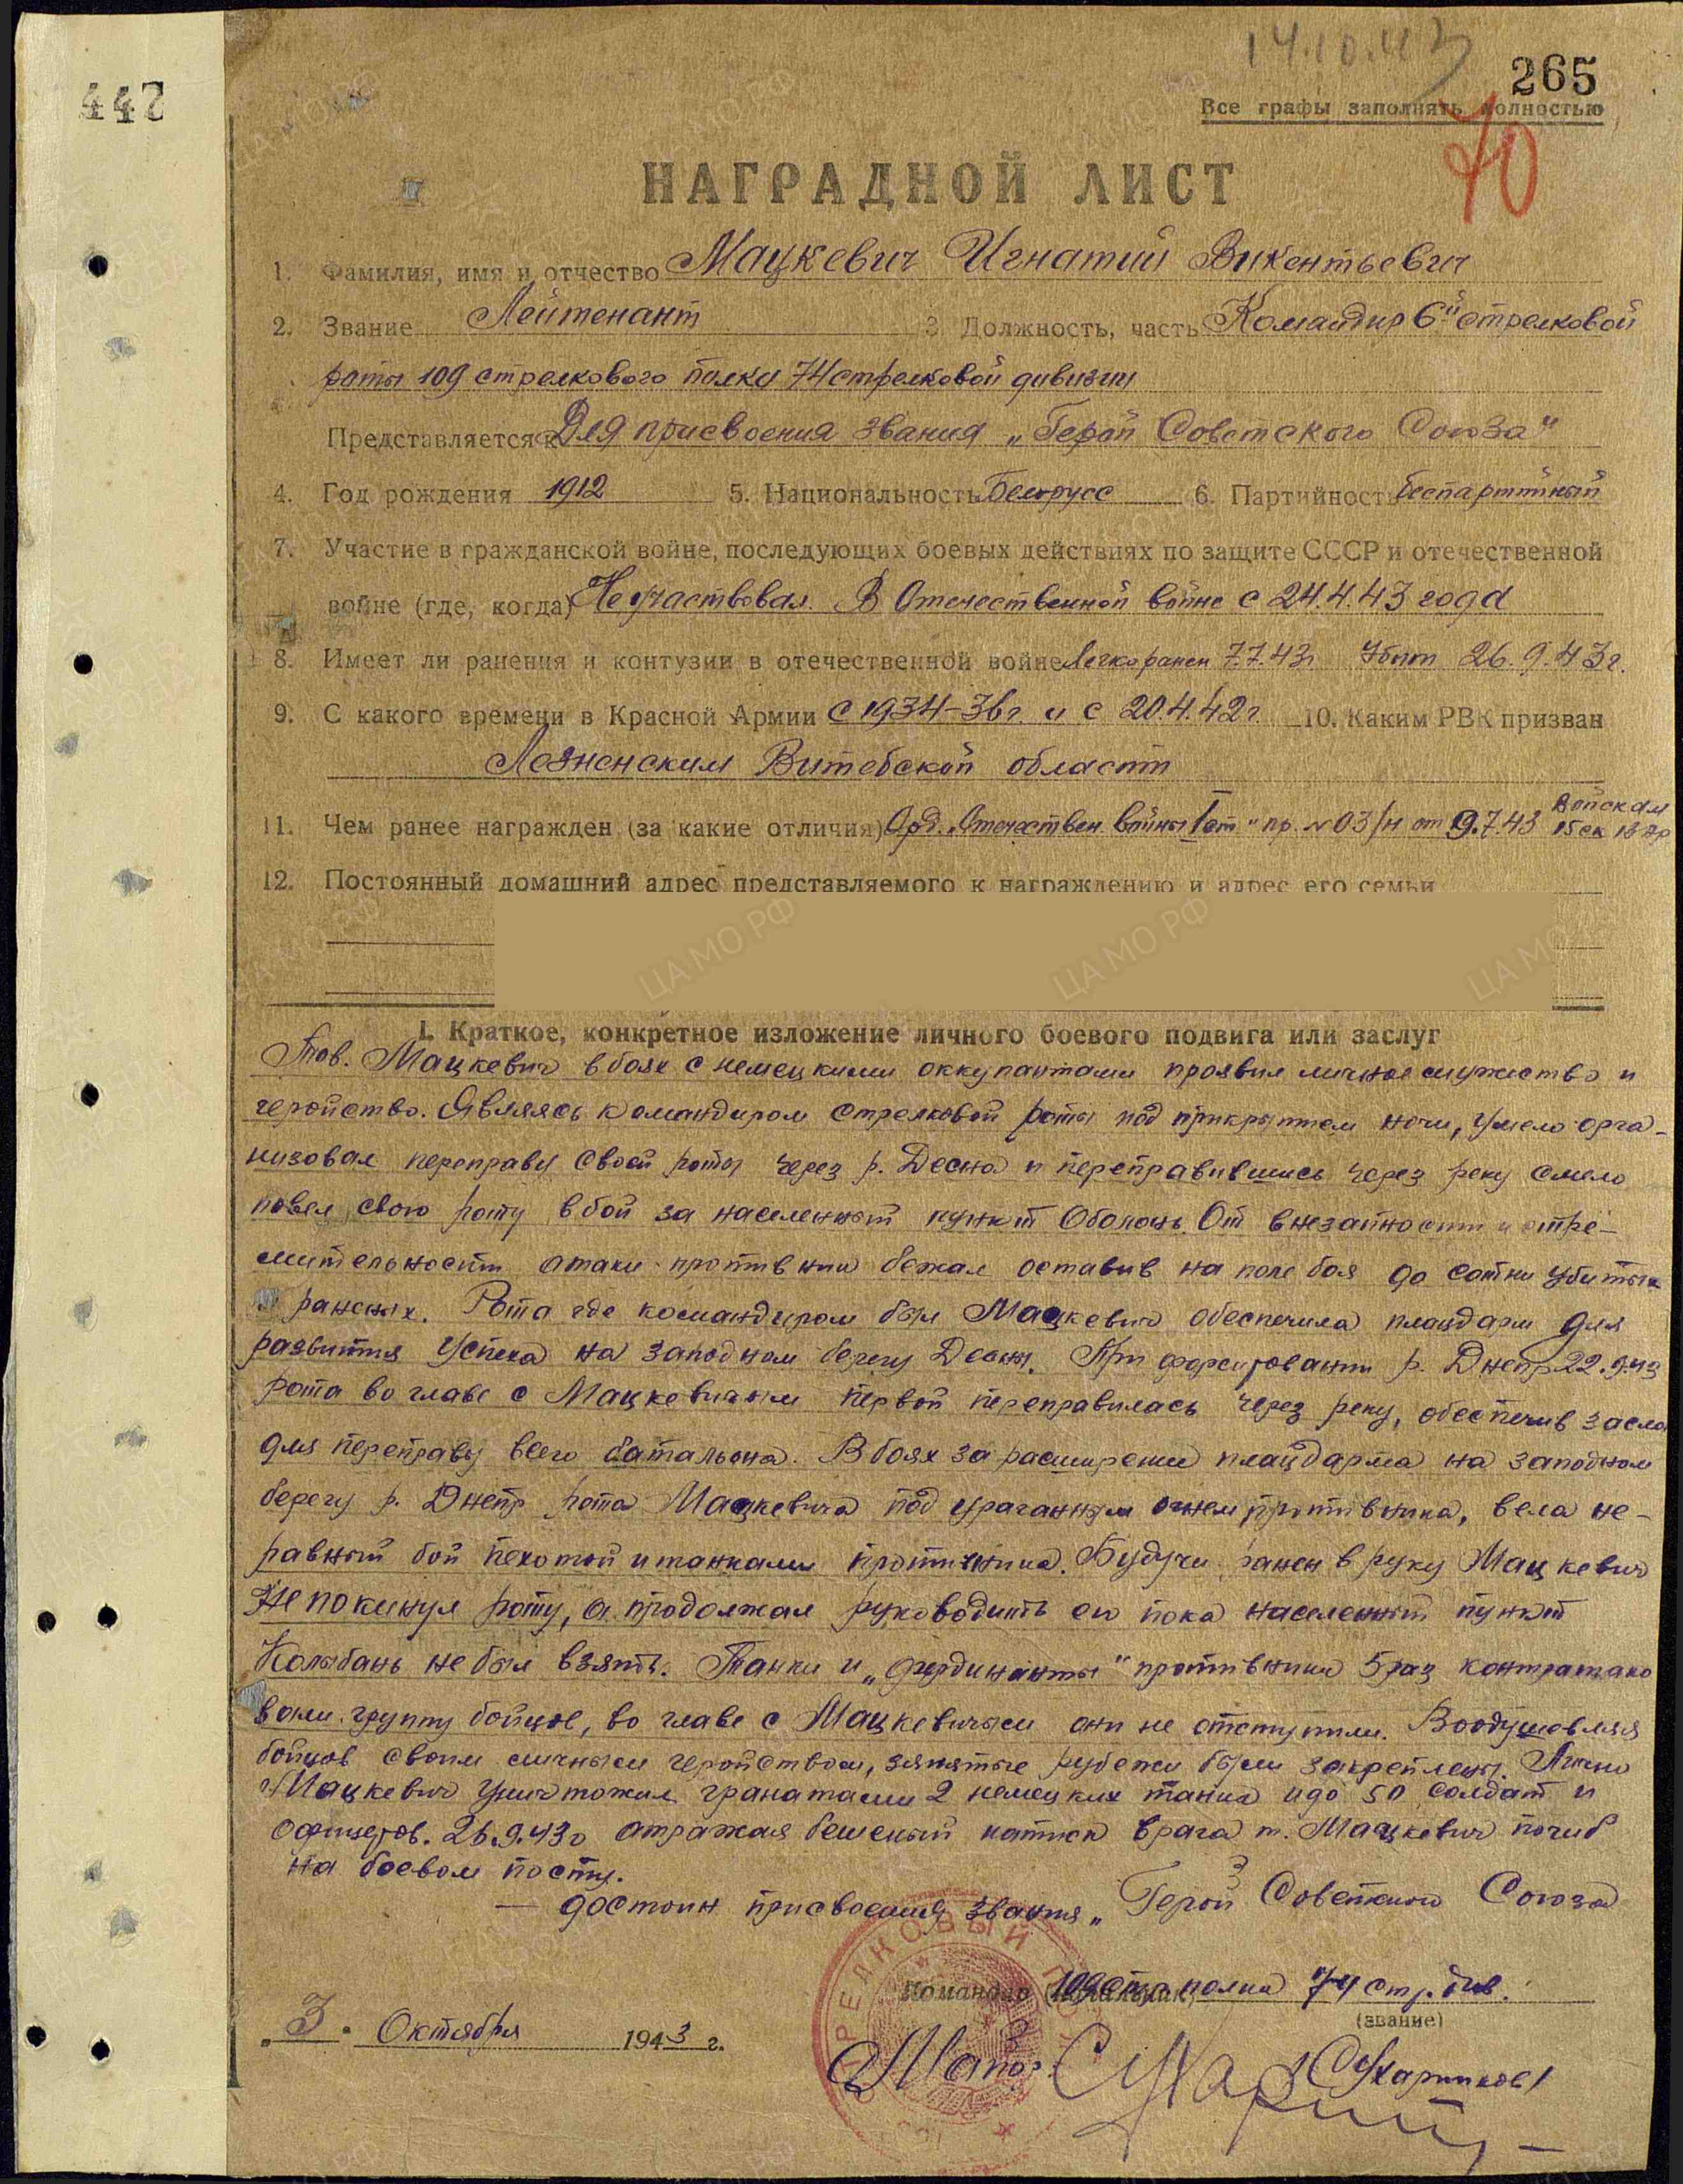 14.10.43
265
442
Все графы заполнять полностью
70
НАГРАДНОЙ ЛИСТ
1. Фамилия, имя и отчество Мацкевич Игнатий Викентьевич
2. Звание Лейтенант 3 Должность, часть Командир 6й стрелковой
роты 109 стрелкового полка 74 стрелковой дивизии
Представляется к Для присвоения звания „Герой Советского Союза"
4. Год рождения 1912 5. Национальность Белорусс 6. Партийность беспартийный
7. Участие в гражданской войне, последующих боевых действиях по защите СССР и отечественной
войне (где, когда) Не участвовал. В Отечественной войне с 24.4.43 года
8. Имеет ли ранения и контузии в отечественной войне Легко ранен 7.7.43г Убит 26.9.43г.
9. С какого времени в Красной Армии с 1934-36г и с 20.4.42г 10. Каким РВК призван
Лезненским Витебской области
11. Чем ранее награжден (за какие отличия) Орд. „Отечествен. войны I ст" пр. № 03/н от 9.7.43 войскам
15 ск 13 Ар
12. Постоянный домашний адрес представляемого к награждению и адрес его семьи
I. Краткое, конкретное изложение личного боевого подвига или заслуг
Тов. Мацкевич в боях с немецкими оккупантами проявил личное мужество и
геройство. Являясь командиром стрелковой роты под прикрытием ночи, умело орга-
низовал переправу своей роты через р. Десна и переправившись через реку смело
повел свою роту в бой за населенный пункт Оболонь. От внезапности и стре-
мительности атаки противник бежал оставив на поле боя до сотни убитых
и раненых. Рота где командиром был Мацкевич обеспечила плацдарм для
развития успеха на западном берегу Десны. При форсировании р. Днепр 22.9.43
рота во главе с Мацкевичем первой переправилась через реку, обеспечив засло
для переправы всего батальона. В боях за расширение плацдарма на западном
берегу р. Днепр рота Мацкевича под ураганным огнем противника, вела не-
равный бой пехотой и танками противника. Будучи ранен в руку Мацкевич
не покинул роту, а продолжал руководить ею пока населенный пункт
Колыбань не был взять. Танки и „фердинанты" противника 5 раз контратако
вали группу бойцов, во главе с Мацкевичем они не отступили. Воодушевляя
бойцов своим личным геройством, занятые рубежи были закреплены. Лично
Мацкевич уничтожил гранатами 2 немецких танка и до 50 солдат и
офицеров. 26.9.43г отражая бешеный натиск врага т. Мацкевич погиб
на боевом посту.
— достоин присвоения звания „Герой Советского Союза
Командир (начальник) 109 стр. полка 74 стр. див.
(звание)
„3" Октября 1943 г.
СТРЕЛКОВЫЙ
Майор